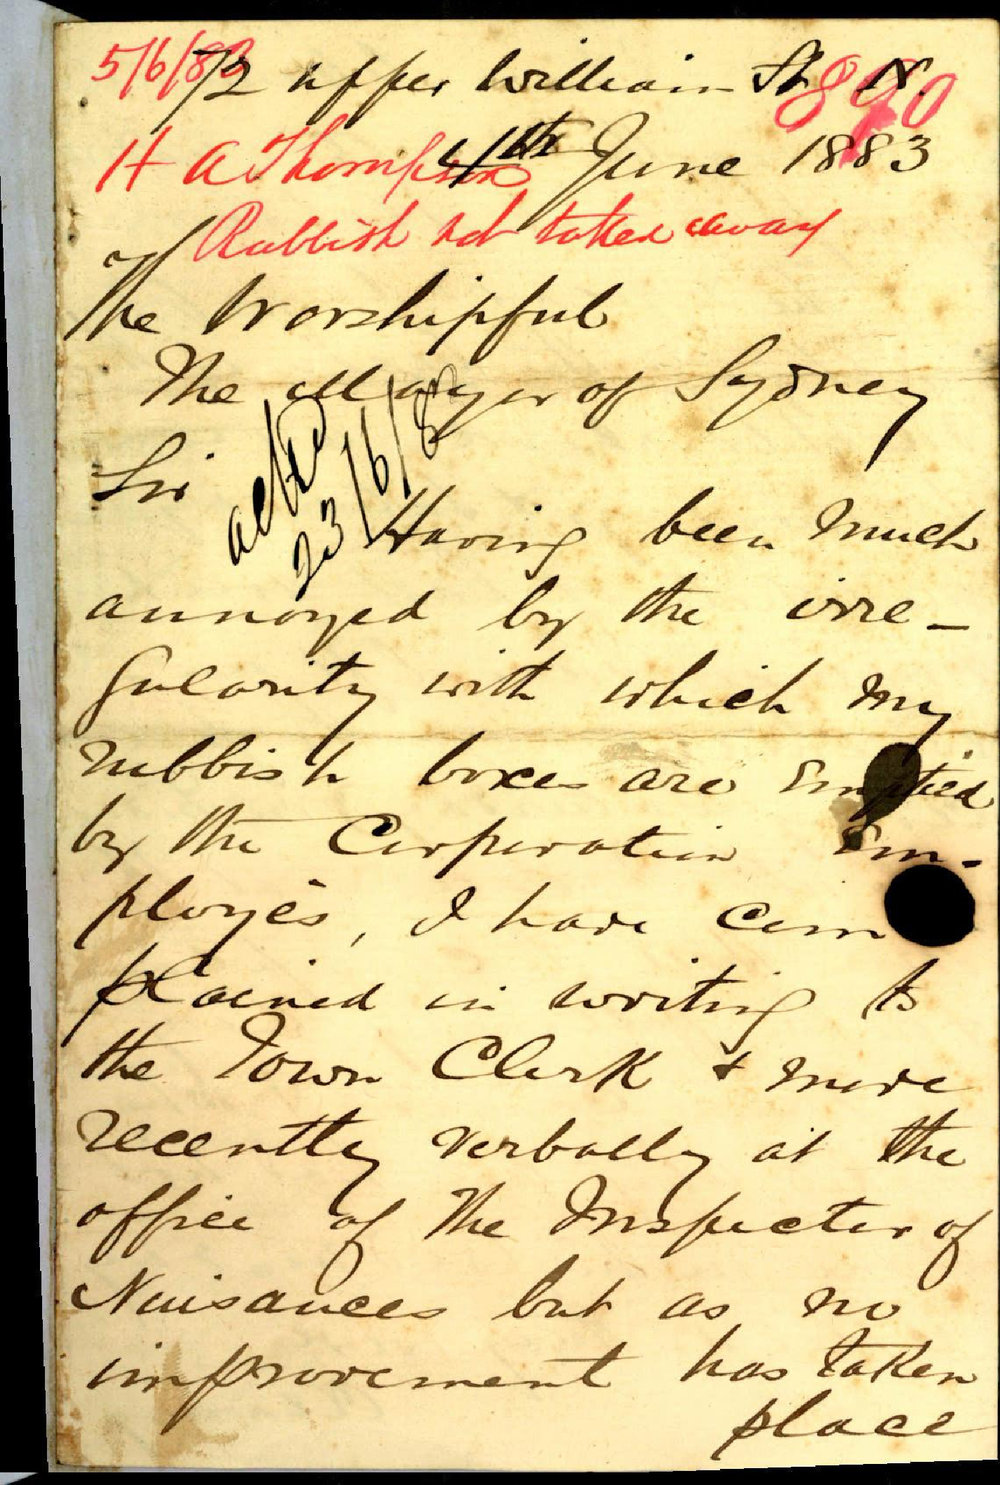 5/6/83
72 Upper William St N.
890
4th June 1883
H A Thompson
Rubbish not taken away
The Worshipful
The Mayor of Sydney
Sir
ackd
23/6/83
Having been much
annoyed by the irre-
gularity with which my
rubbish boxes are emptied
by the Corporation Em-
ployés, I have com
plained in writing to
the Town Clerk & more
recently verbally at the
office of the Inspector of
Nuisances but as no
improvement has taken
place